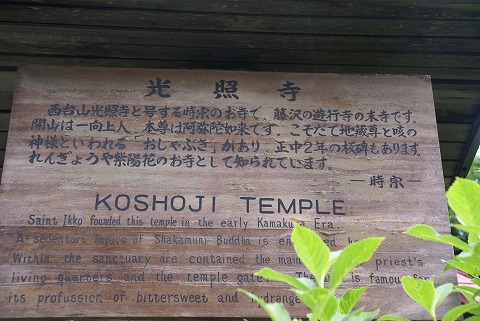 光照寺
西台山光照寺と号する時宗のお寺で、藤沢の遊行寺の末寺です。
開山は一向上人、本尊は阿弥陀如来です。こそだて地蔵尊と咳の
神様といわれる「おしゃぶき」があり、正中2年の板碑もあります。
れんぎょうや紫陽花のお寺として知られています。
―時宗―
KOSHOJI TEMPLE
Saint Ikko founded this temple in the early Kamakura Era.
A sedentary image of Shakamuni Buddha is
Within the sanctuary are contained the main priest's
living quarters and the temple is famous for
its profussion of bittersweet and